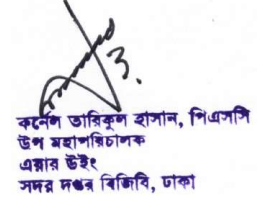 ৩.
কর্নেল তারিকুল হাসান, পিএসসি
উপ মহাপরিচালক
এয়ার উইং
সদর দপ্তর বিজিবি, ঢাকা